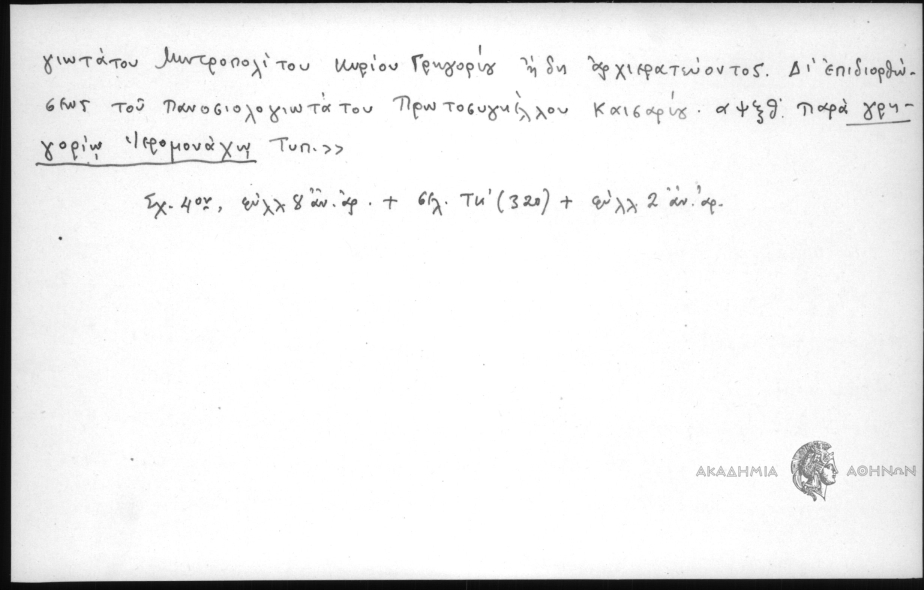 γιωτάτου Μητροπολίτου Κυρίου Γρηγορίου ἤδη ἀρχιερατεύοντος. Δι' ἐπιδιορθώ-
σεως τοῦ Πανοσιολογιωτάτου Πρωτοσυγκέλλου Καισαρίου. αψξθ'. παρὰ γρη-
γορίῳ Ἱερομονάχῳ Τυπ.>>
Σχ. 4ον, φύλλ 8 ἄν. ἀρ. + σελ. τκ' (320) + φύλλ 2 ἄν. ἀρ.
ΑΚΑΔΗΜΙΑ ΑΘΗΝΩΝ